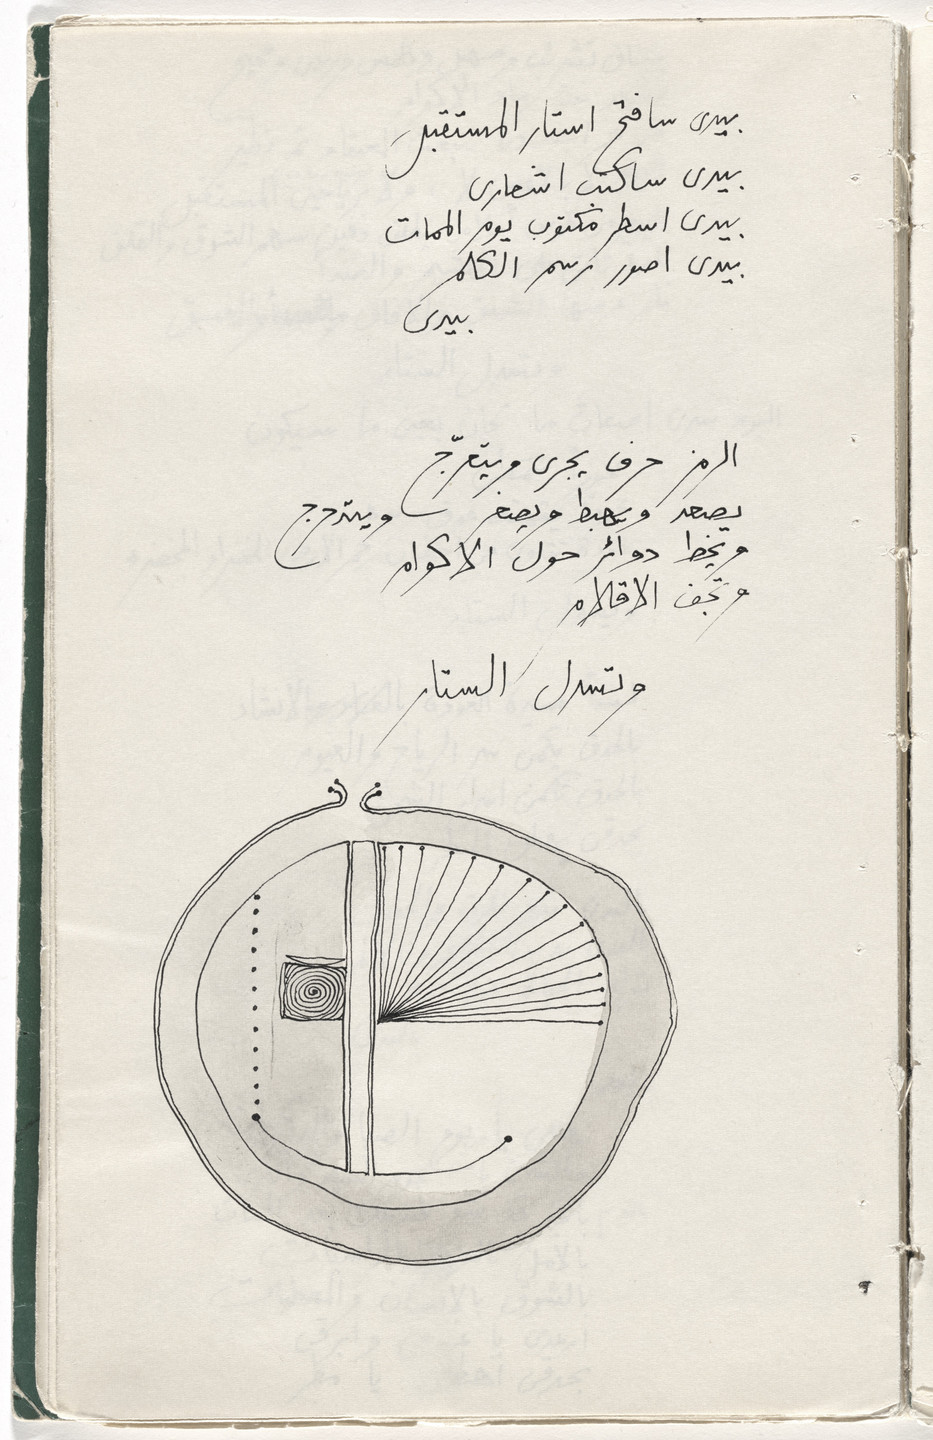 بيدى سافتح استار المستقبل
بيدى ساكتب اشعارى
بيدى اسطر مكتوب يوم الممات
بيدى اصور رسم الكلم
بيدى
الرمز حرف يجرى ويتعرّج
يصعد ويهبط ويصغر ويتدحرج
ويخط دوائر حول الاكوام
وتجف الاقلام
وتسدل الستار